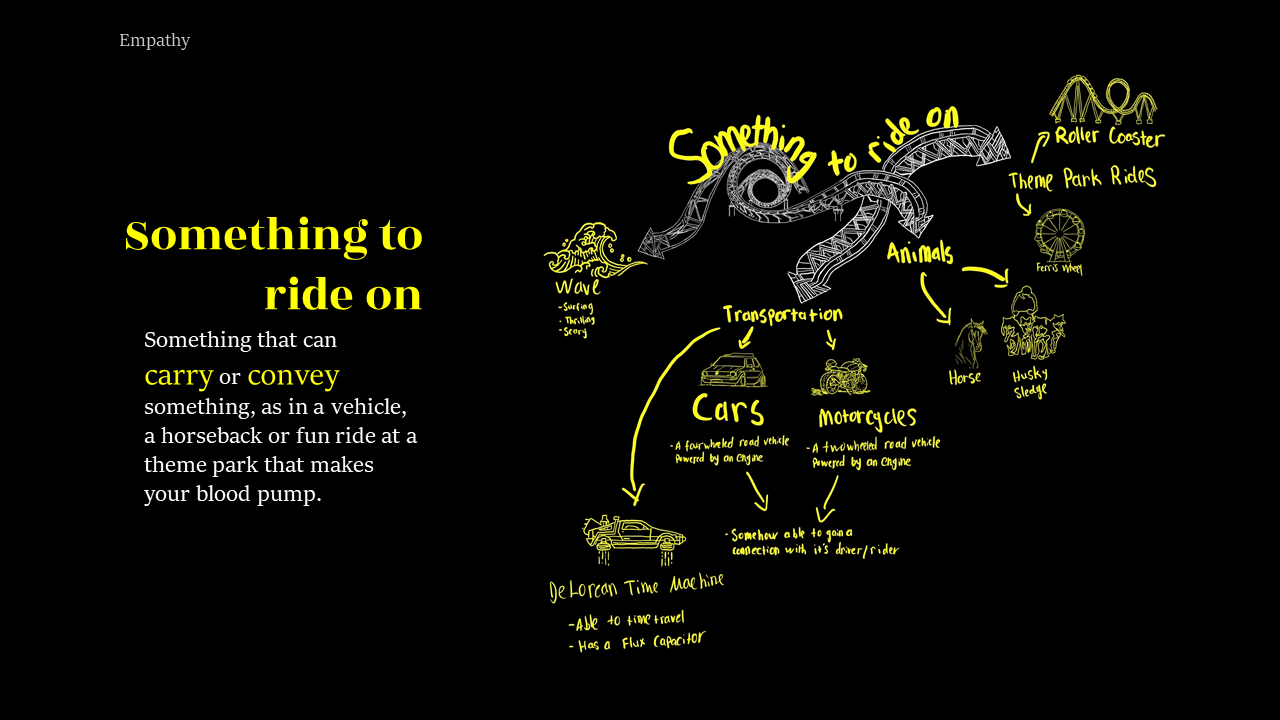 Empathy
Something to
ride on
Something that can
carry or convey
something, as in a vehicle,
a horseback or fun ride at a
theme park that makes
your blood pump.
Something to ride on
Roller Coaster
Theme Park Rides
Ferris Wheel
Animals
Horse
Husky
Sledge
Wave
- Surfing
- Thrilling
- Scary
Transportation
Cars
- A four wheeled road vehicle
Powered by an Engine
Motorcycles
- A two wheeled road vehicle
Powered by an Engine
- Somehow able to gain a
connection with it's driver/rider
DeLorean Time Machine
- Able to time travel
- Has a Flux Capacitor